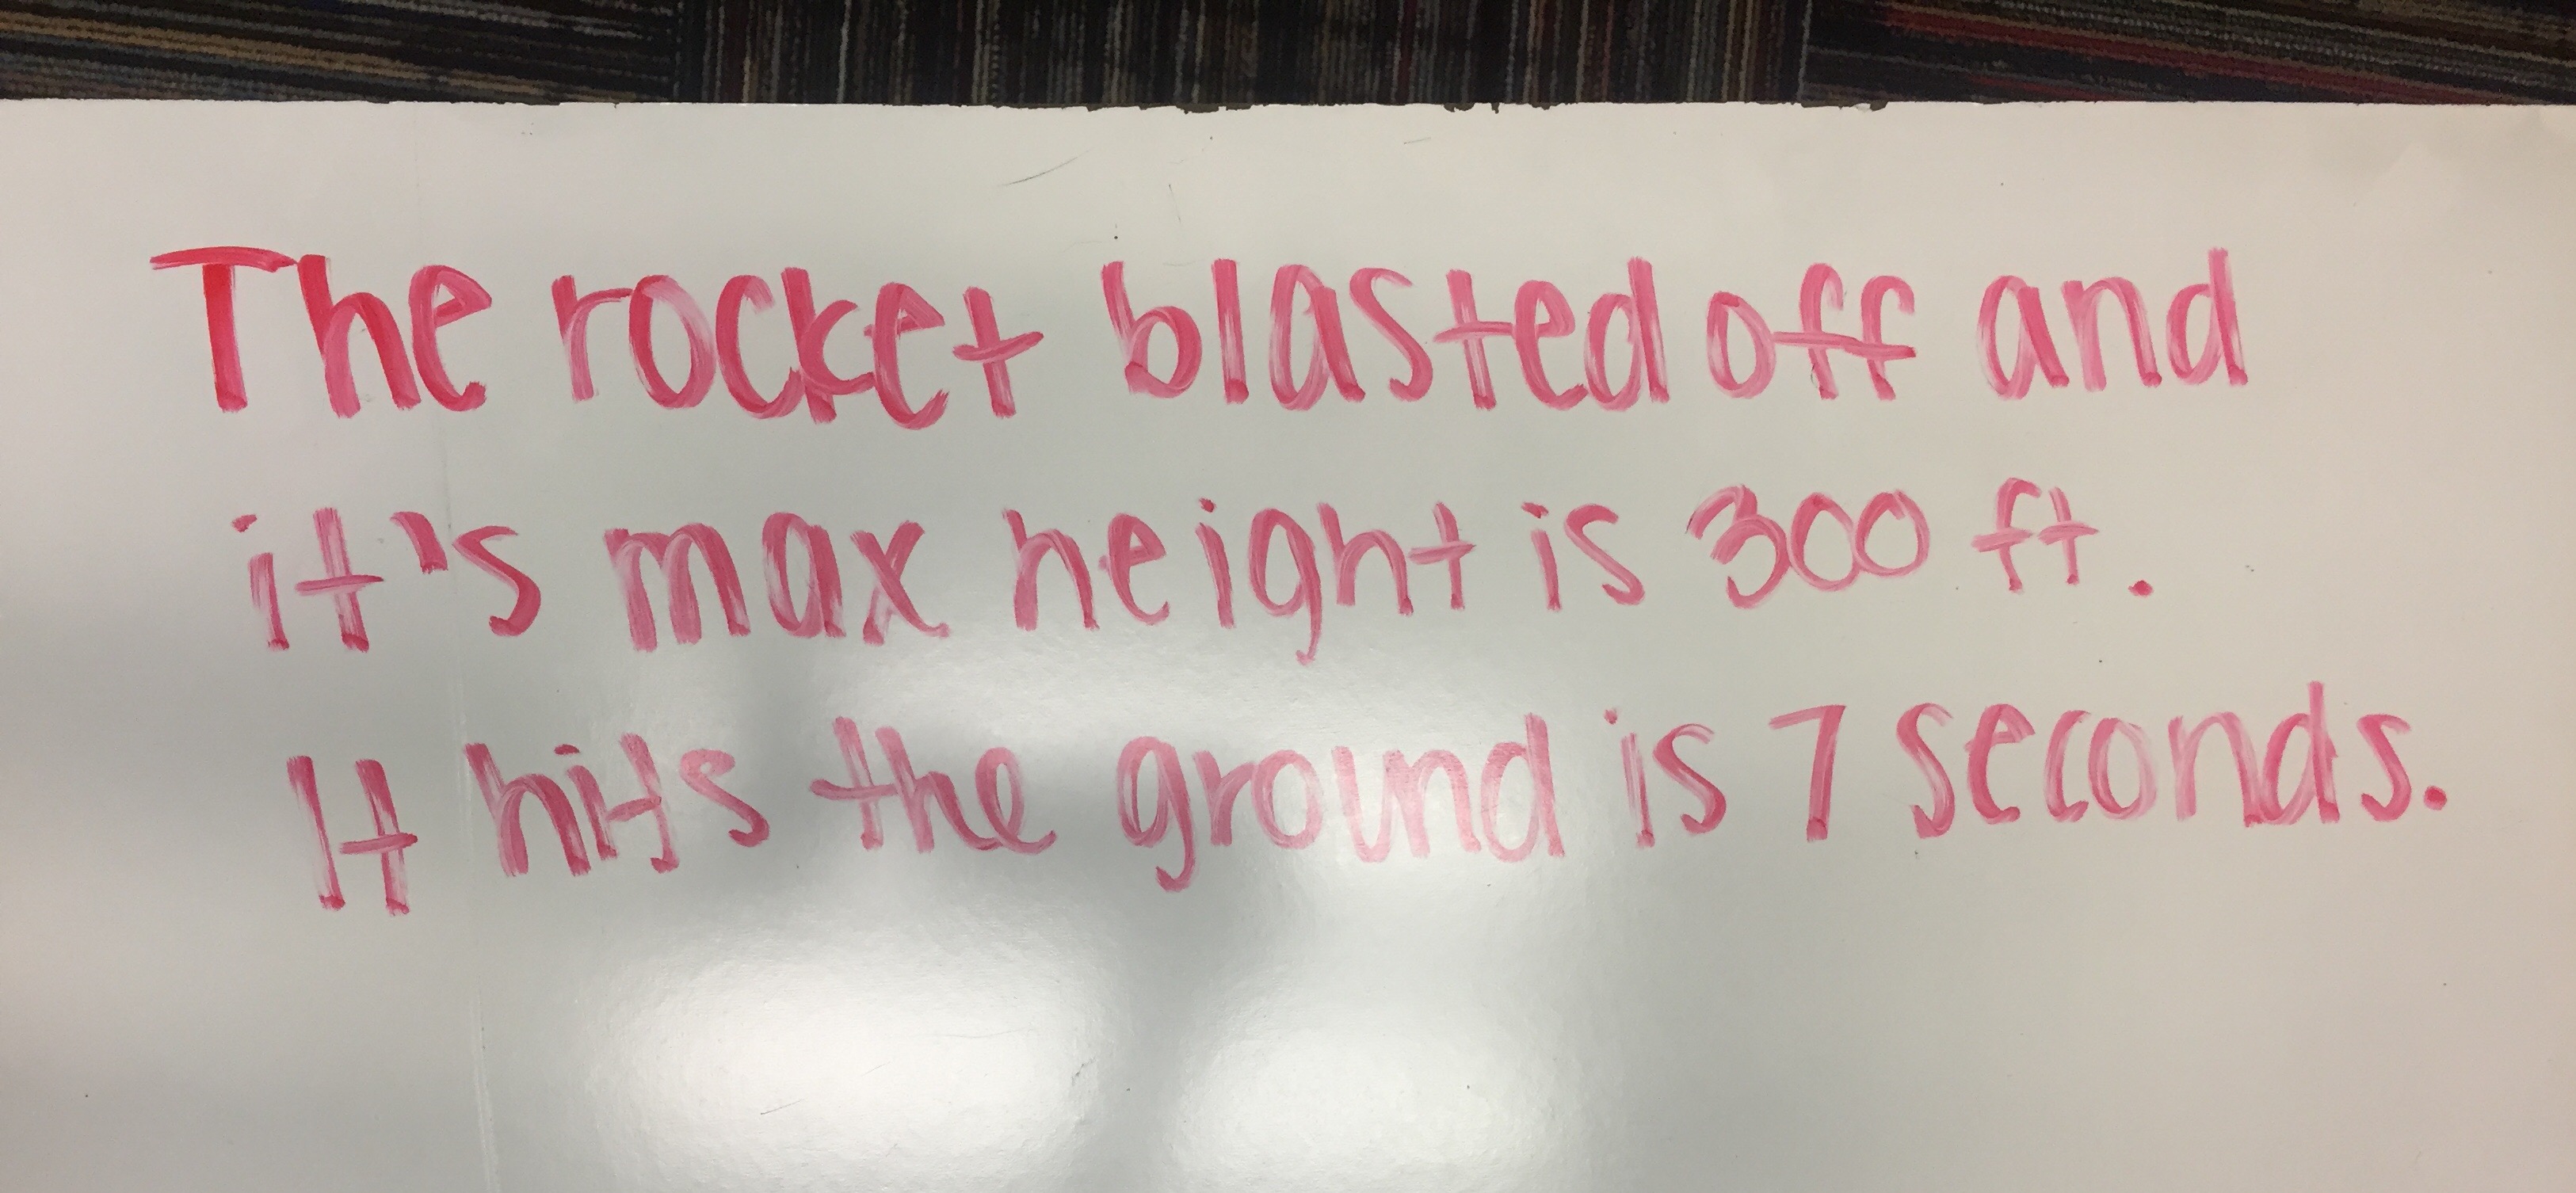 The rocket blasted off and
it's max height is 300 ft.
It hits the ground is 7 seconds.